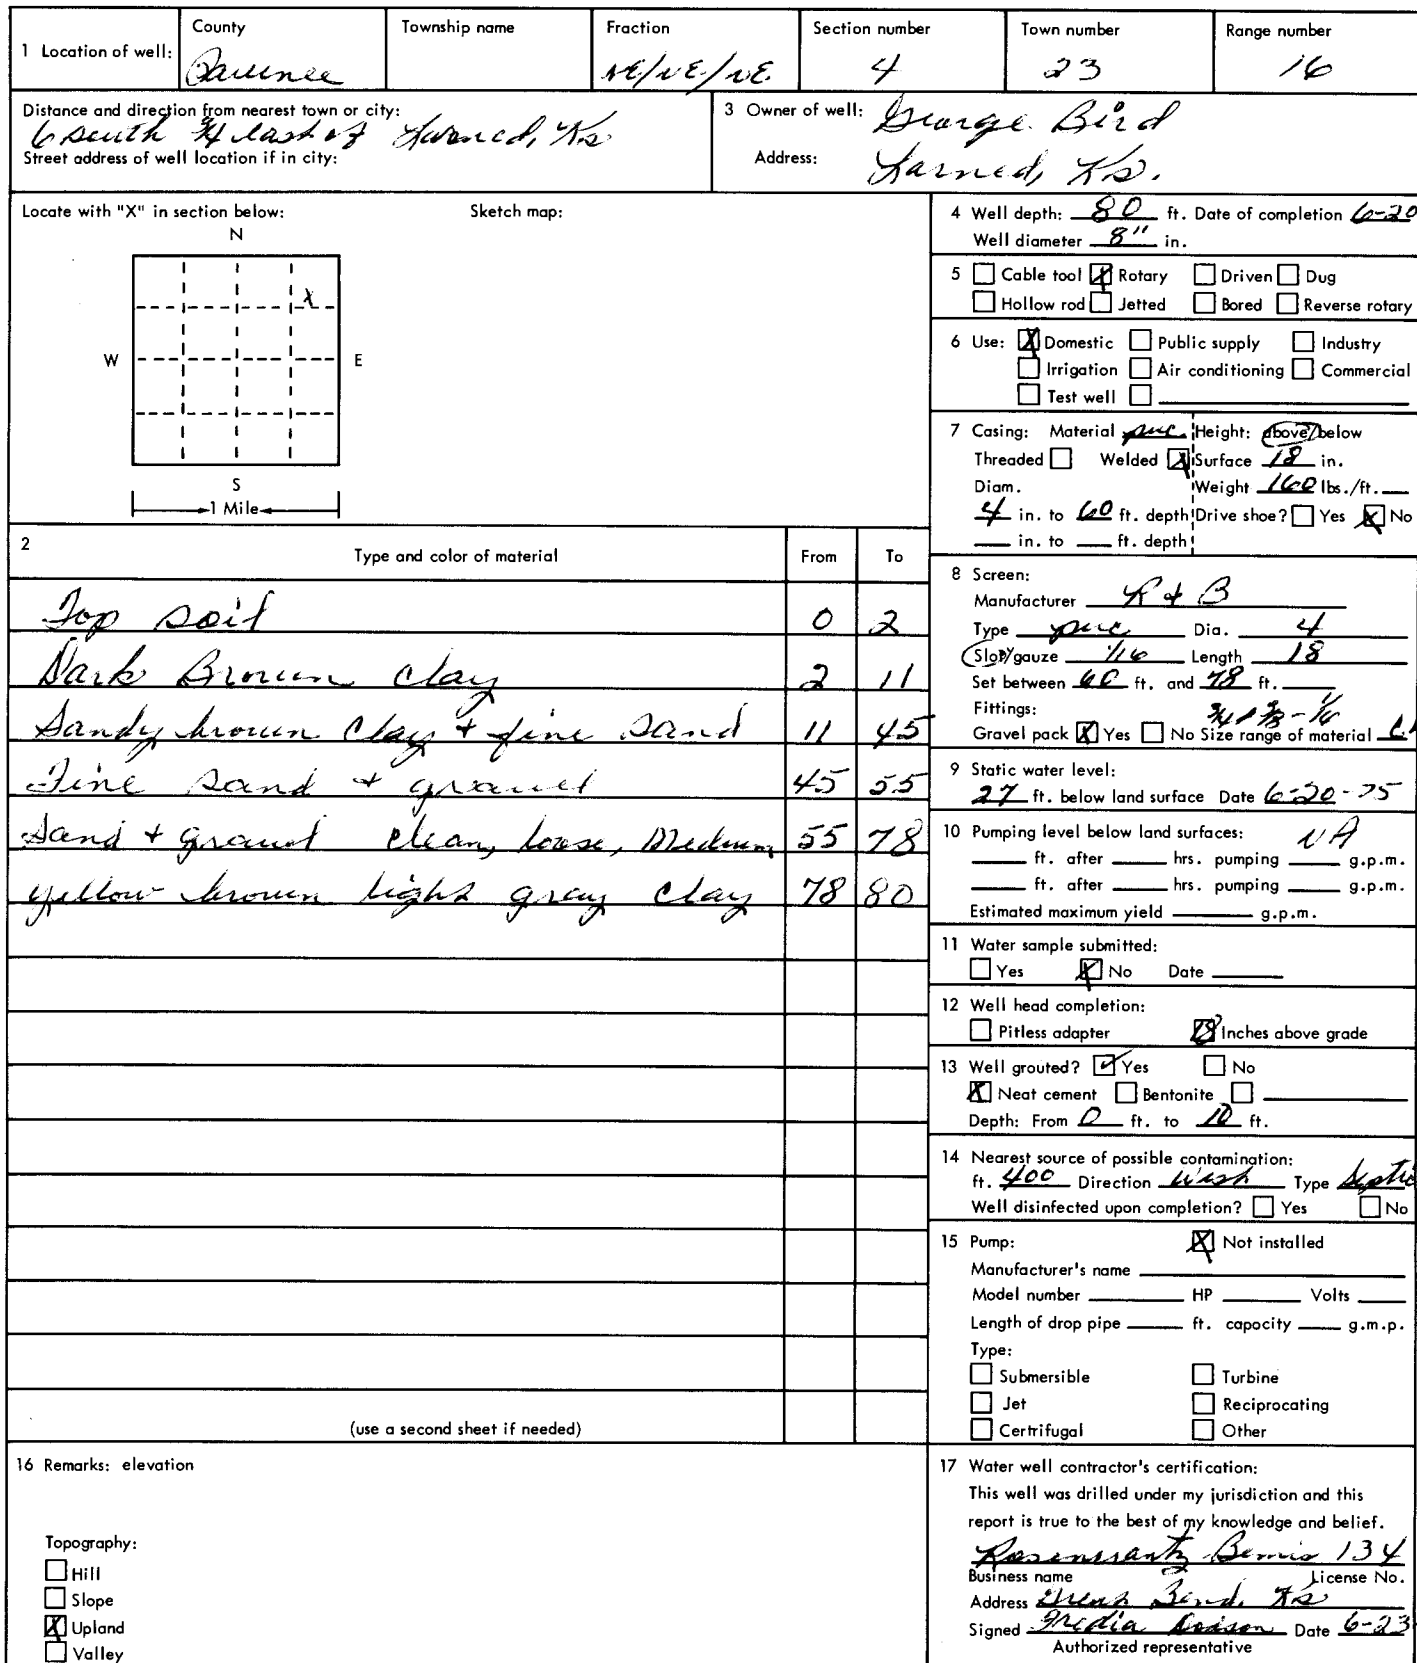 1 Location of well: County Pawnee Township name Fraction NE/NE/NE Section number 4 Town number 23 Range number 16
Distance and direction from nearest town or city:
6 south 3/4 east of Larned, Ks
Street address of well location if in city:
3 Owner of well: George Bird
Address: Larned, Ks.
Locate with "X" in section below: Sketch map:
N
X
W E
S
1 Mile
2 Type and color of material From To
Top soil 0 2
Dark Brown clay 2 11
Sandy brown clay + fine sand 11 45
Fine sand + gravel 45 55
Sand + gravel clean, loose, Medium 55 78
yellow brown light gray clay 78 80
(use a second sheet if needed)
4 Well depth: 80 ft. Date of completion 6-20
Well diameter 8" in.
5 Cable tool X Rotary Driven Dug
Hollow rod Jetted Bored Reverse rotary
6 Use: X Domestic Public supply Industry
Irrigation Air conditioning Commercial
Test well
7 Casing: Material pvc Height: above/below
Threaded Welded X Surface 18 in.
Diam. Weight 160 lbs./ft.
4 in. to 60 ft. depth Drive shoe? Yes X No
in. to ft. depth
8 Screen:
Manufacturer R & B
Type pvc Dia. 4
Slot/gauze 1/16 Length 18
Set between 60 ft. and 78 ft.
Fittings:
Gravel pack X Yes No Size range of material
9 Static water level:
27 ft. below land surface Date 6-20-75
10 Pumping level below land surfaces: NA
ft. after hrs. pumping g.p.m.
ft. after hrs. pumping g.p.m.
Estimated maximum yield g.p.m.
11 Water sample submitted:
Yes X No Date
12 Well head completion:
Pitless adapter 18 Inches above grade
13 Well grouted? ✓ Yes No
X Neat cement Bentonite
Depth: From 0 ft. to 10 ft.
14 Nearest source of possible contamination:
ft. 400 Direction West Type Septic
Well disinfected upon completion? Yes No
15 Pump: X Not installed
Manufacturer's name
Model number HP Volts
Length of drop pipe ft. capacity g.m.p.
Type:
Submersible Turbine
Jet Reciprocating
Certrifugal Other
16 Remarks: elevation
Topography:
Hill
Slope
X Upland
Valley
17 Water well contractor's certification:
This well was drilled under my jurisdiction and this
report is true to the best of my knowledge and belief.
Rosencrantz Bemis 134
Business name License No.
Address Great Bend, Ks
Signed Date 6-23
Authorized representative